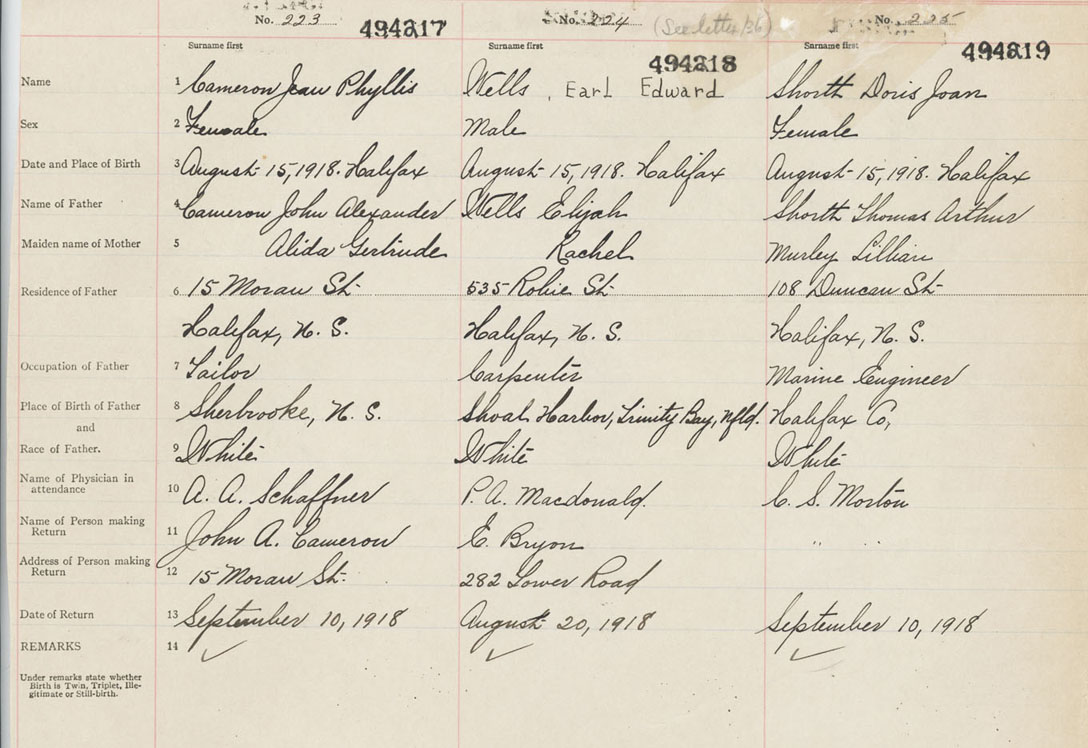 No. 223 No. 224 No. 225
494217 (See letter/36)
494218 494219
Surname first Surname first Surname first
Name 1 Cameron Jean Phyllis Wells, Earl Edward Shorth Doris Joan
Sex 2 Female Male Female
Date and Place of Birth 3 August 15, 1918. Halifax August 15, 1918. Halifax August 15, 1918. Halifax
Name of Father 4 Cameron John Alexander Wells Elijah Shorth Thomas Arthur
Maiden name of Mother 5 Alida Gertrude Rachel Murley Lillian
Residence of Father 6 15 Moran St. 535 Robie St. 108 Duncan St.
Halifax, N. S. Halifax, N. S. Halifax, N. S.
Occupation of Father 7 Tailor Carpenter Marine Engineer
Place of Birth of Father 8 Sherbrooke, N. S. Shoal Harbor, Trinity Bay, Nfld. Halifax Co,
and
Race of Father. 9 White White White
Name of Physician in
attendance 10 A. A. Schaffner P. A. Macdonald. C. S. Morton
Name of Person making
Return 11 John A. Cameron E. Bryon " "
Address of Person making
Return 12 15 Moran St. 282 Lower Road
Date of Return 13 September 10, 1918 August 20, 1918 September 10, 1918
REMARKS 14
Under remarks state whether
Birth is Twin, Triplet, Ille-
gitimate or Still-birth.